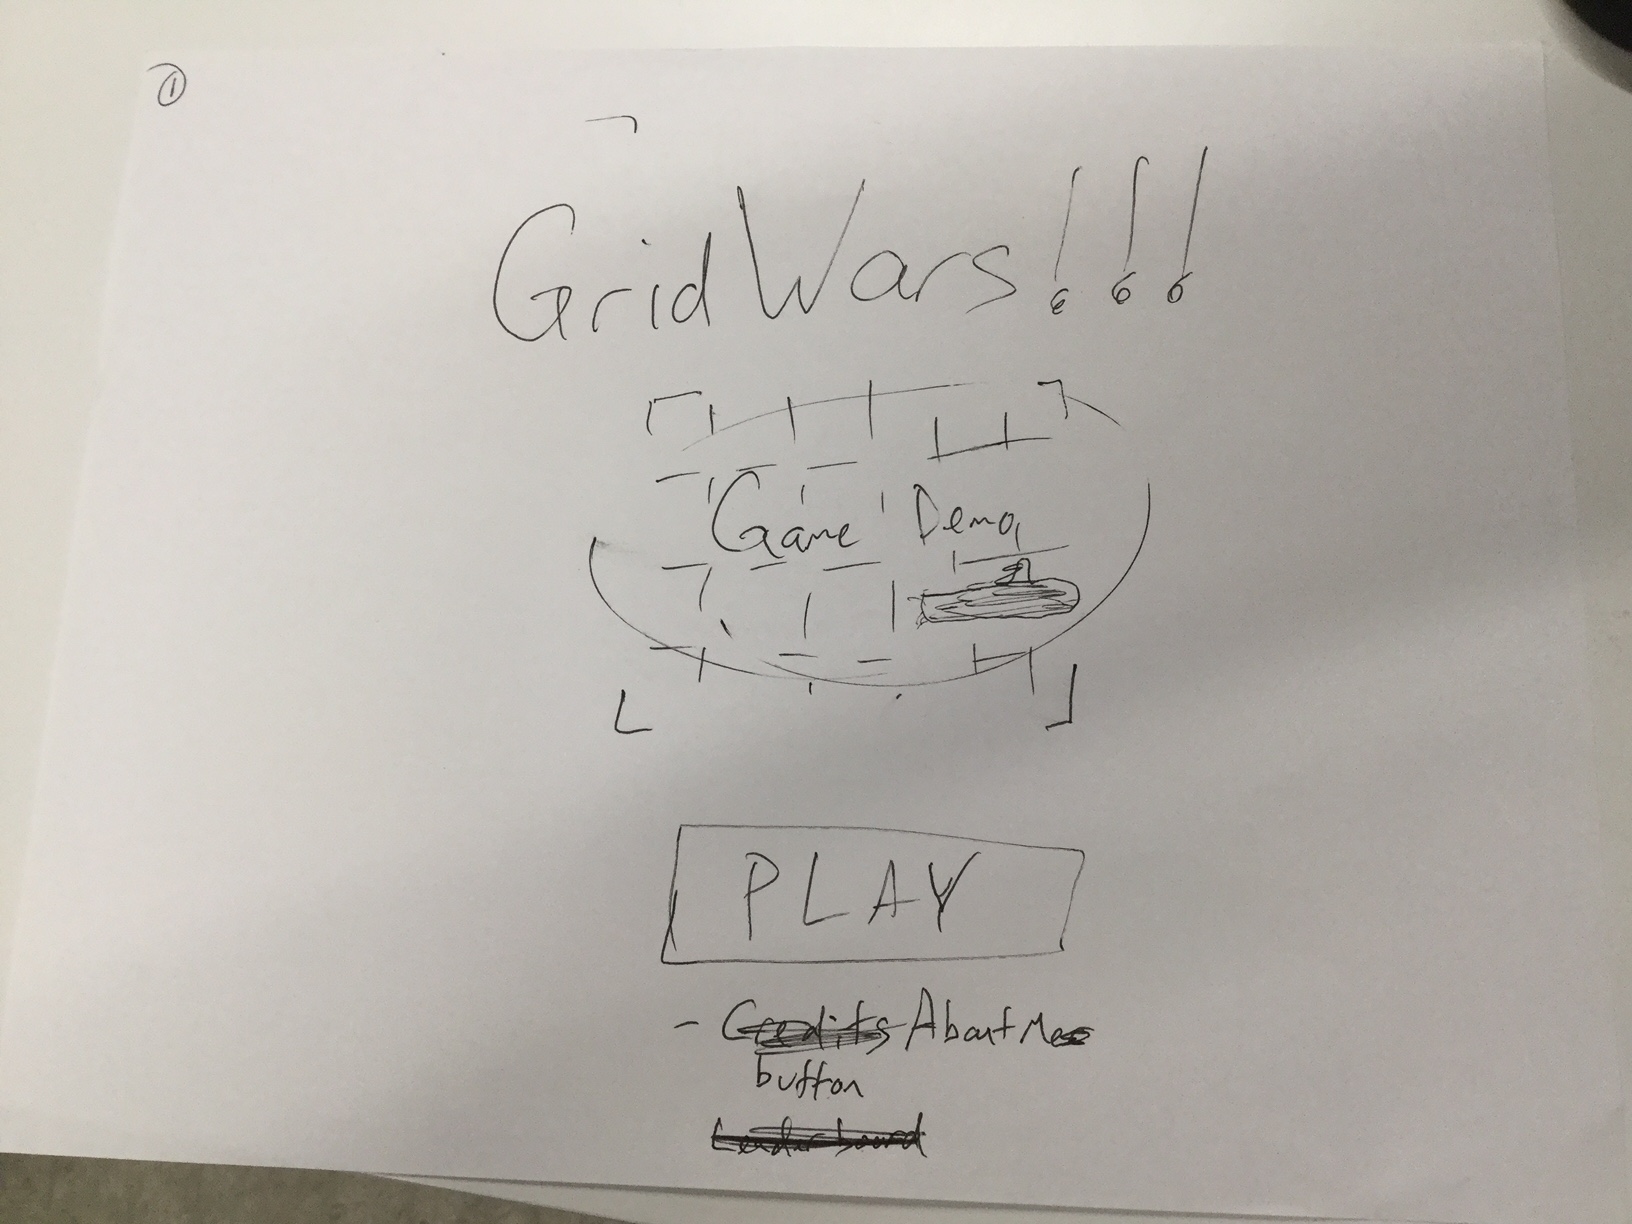 ①
Grid Wars!!!
Game Demo
PLAY
- Credits About Me
button